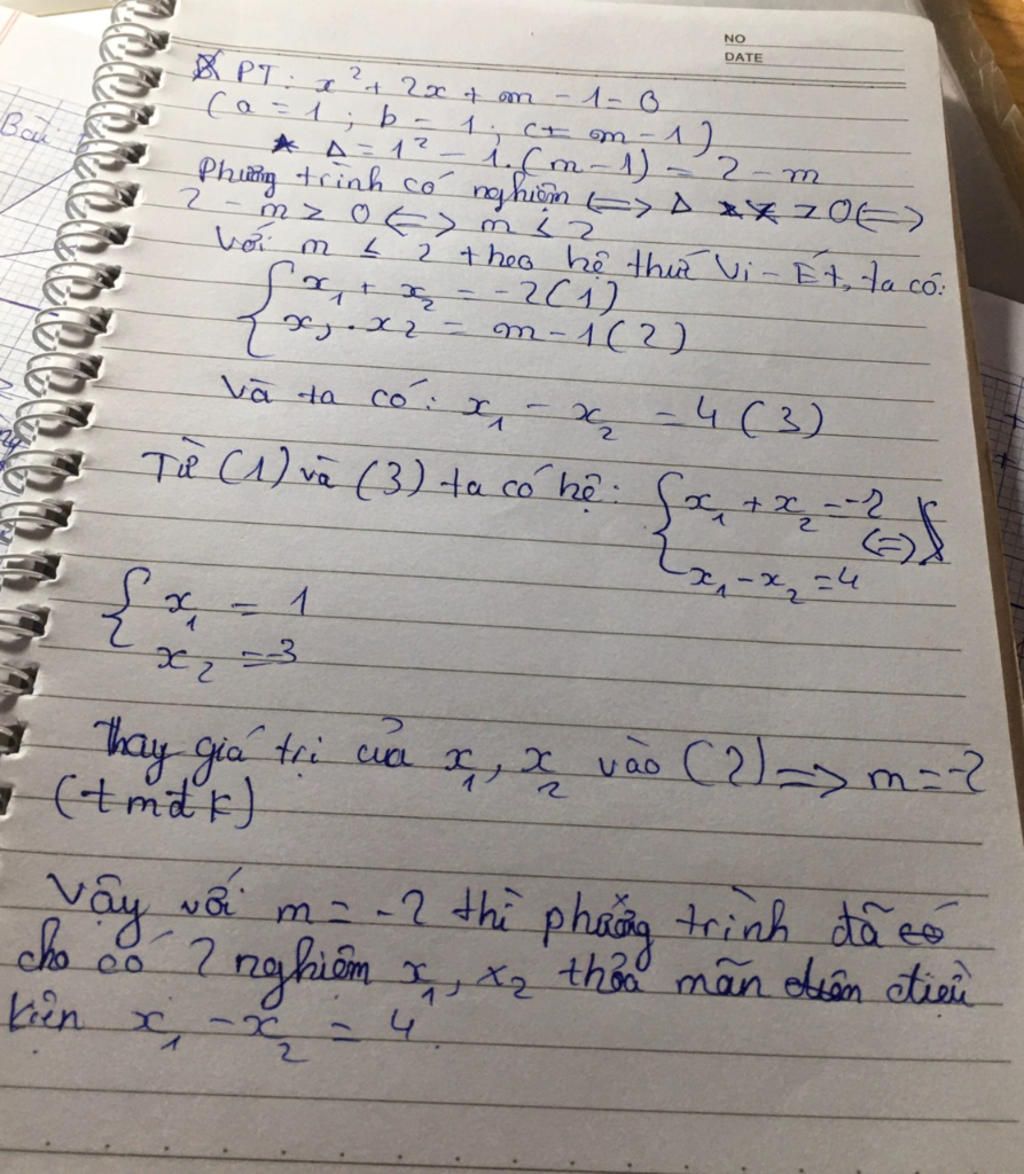 NO
DATE
PT: x² + 2x + m - 1 = 0
(a = 1; b = 1; c = m - 1)
* Δ = 1² - 1.(m - 1) = 2 - m
Phương trình có nghiệm <=> Δ ≥ 0 <=>
2 - m ≥ 0 <=> m ≤ 2
Với m ≤ 2 theo hệ thức Vi - Ét, ta có:
x₁ + x₂ = -2 (1)
x₁ . x₂ = m - 1 (2)
Và ta có: x₁ - x₂ = 4 (3)
Từ (1) và (3) ta có hệ: { x₁ + x₂ = -2
(=)
x₁ - x₂ = 4
{ x₁ = 1
x₂ = -3
Thay giá trị của x₁, x₂ vào (2) => m = -2
(tmđk)
Vậy với m = -2 thì phương trình đã
cho có 2 nghiệm x₁, x₂ thỏa mãn điều
kiện x₁ - x₂ = 4.
Bài